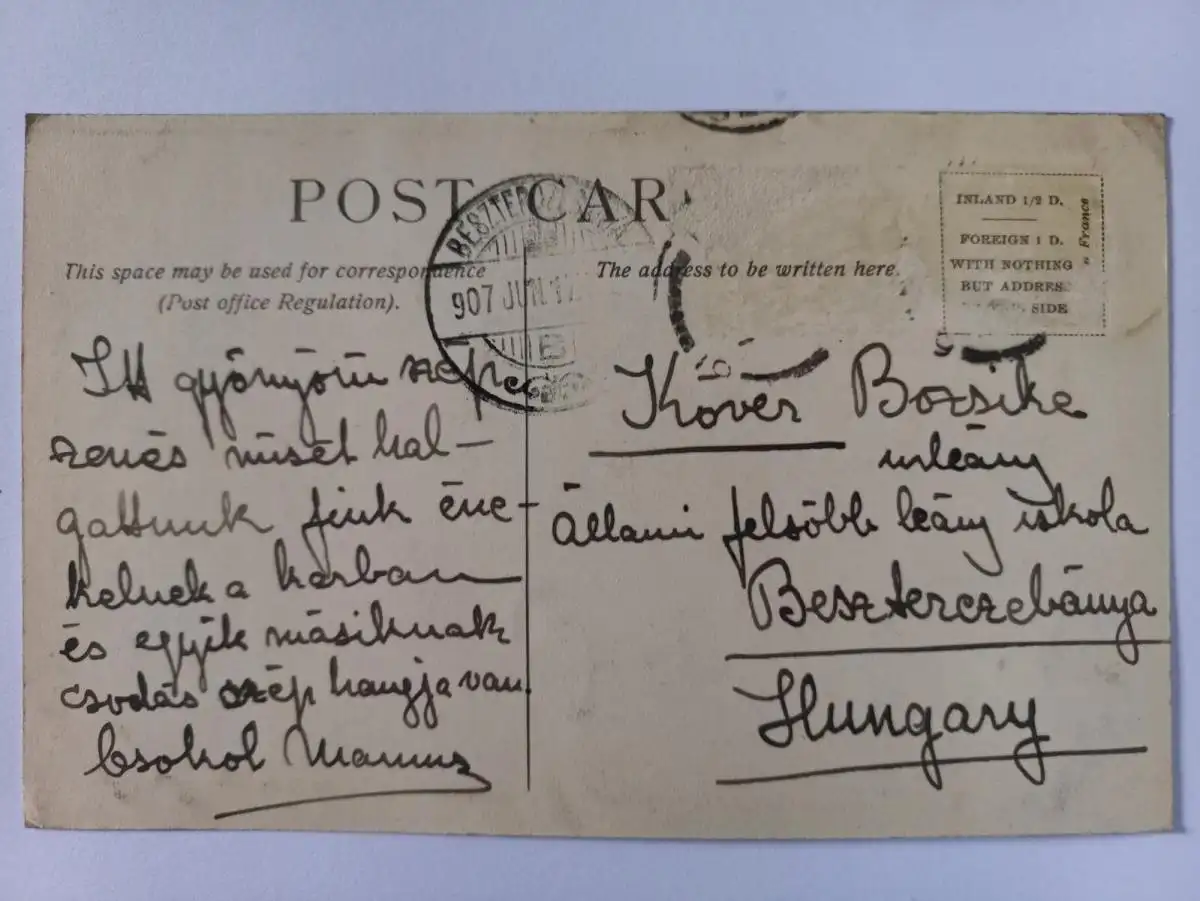 POST CAR
BESZTER
907 JUN. 17.
B
This space may be used for correspondence
(Post office Regulation).
The address to be written here.
INLAND 1/2 D.
FOREIGN 1 D.
WITH NOTHING
BUT ADDRES
SIDE
France
Itt gyönyörü szép
zenés misét hal-
gattunk fiuk éne-
kelnek a karban
és egyik másiknak
csodás szép hangja van.
Csokol Mamus
Kövér Bözsike
urleány
Állami felsöbb leány iskola
Beszterczebánya
Hungary